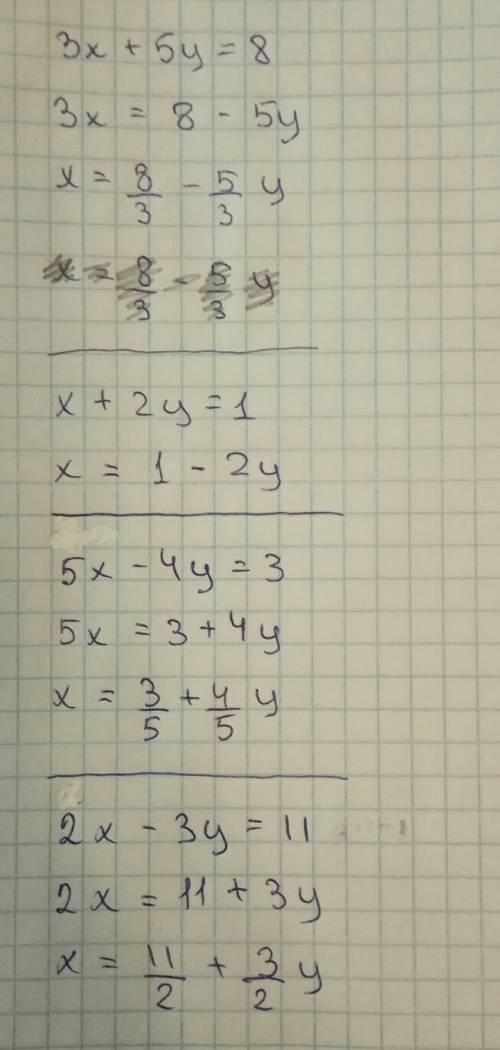 3x + 5y = 8
3x = 8 - 5y
x = 8/3 - 5/3 y
x = 8/3 - 5/3 y
x + 2y = 1
x = 1 - 2y
5x - 4y = 3
5x = 3 + 4y
x = 3/5 + 4/5 y
2x - 3y = 11
2x = 11 + 3y
x = 11/2 + 3/2 y